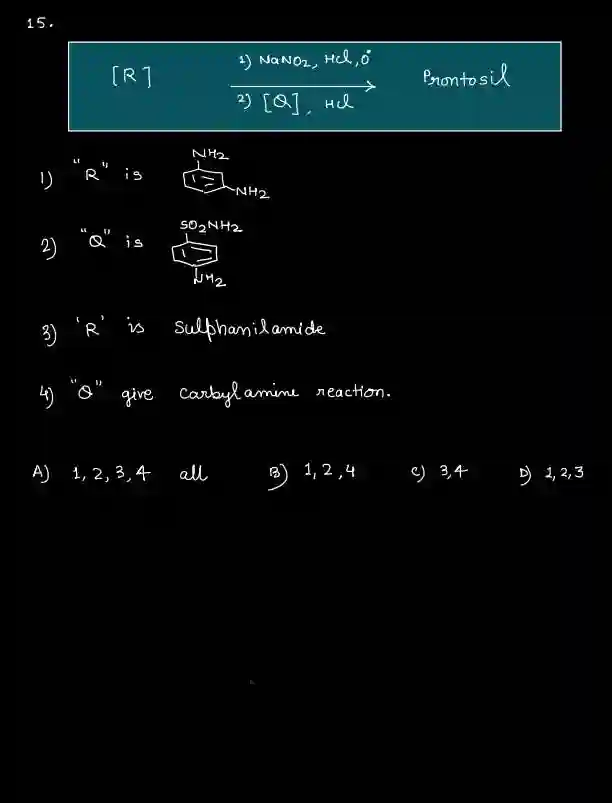 15.
[R] 1) NaNO2, HCl, 0° Prontosil
2) [Q], HCl
NH2
1) "R" is
NH2
SO2NH2
2) "Q" is
NH2
3) 'R' is Sulphanilamide
4) "Q" give Carbylamine reaction.
A) 1, 2, 3, 4 all B) 1, 2, 4 C) 3, 4 D) 1, 2, 3